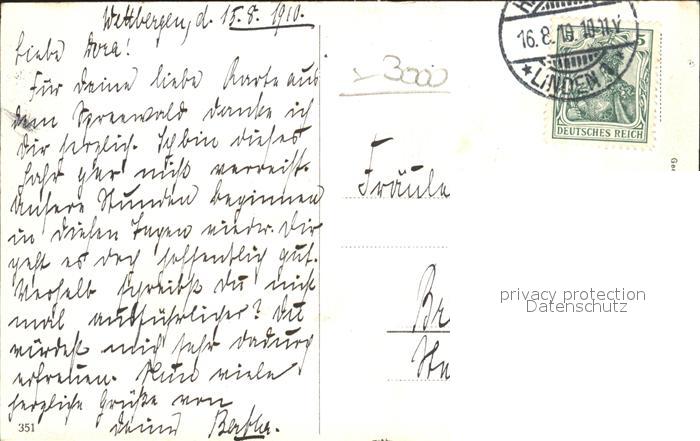 Wettbergen, d. 15.8.1910.
Liebe Dora!
Für deine liebe Karte aus
dem Spreewald danke ich
dir herzlich. Ich bin dieses
Jahr gar nicht verreist.
Unsere Stunden beginnen
in diesen Tagen wieder. Dir
geht es doch hoffentlich gut.
Weshalb schreibst du nicht
mal ausführlicher? Du
würdest mich sehr dadurch
erfreuen. Nun viele
herzliche Grüße von
deiner Bertha.
351
3000
16.8.10.10-11V
*LINDEN
DEUTSCHES REICH
5
Fräule
Br
privacy protection
Datenschutz